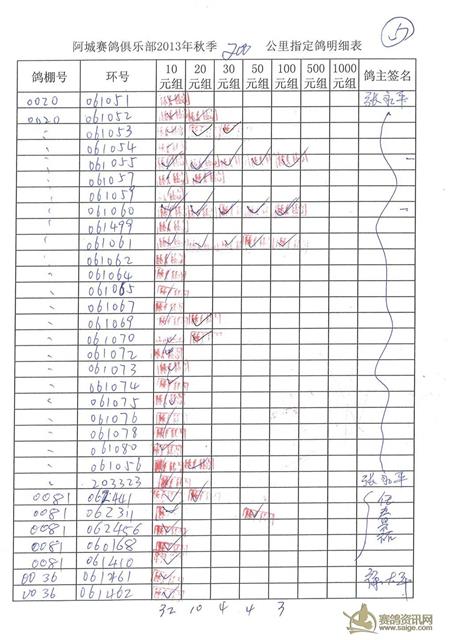 阿城赛鸽俱乐部2013年秋季 200 公里指定鸽明细表
鸽棚号 环号 10元组 20元组 30元组 50元组 100元组 500元组 1000元组 鸽主签名
0020 061051
0020 061052
〃 061053
〃 061054
〃 061055
〃 061057
〃 061059
〃 061060
〃 061499
〃 061061
〃 061062
〃 061064
〃 061065
〃 061067
〃 061069
〃 061070
〃 061072
〃 061073
〃 061074
〃 061075
〃 061076
〃 061078
〃 061080
〃 061056
〃 203323
0081 062441
0081 062311
0081 062456
0081 060168
0081 061410
0036 061461
0036 061462
32 10 4 4 3
赛鸽资讯网
www.saige.com